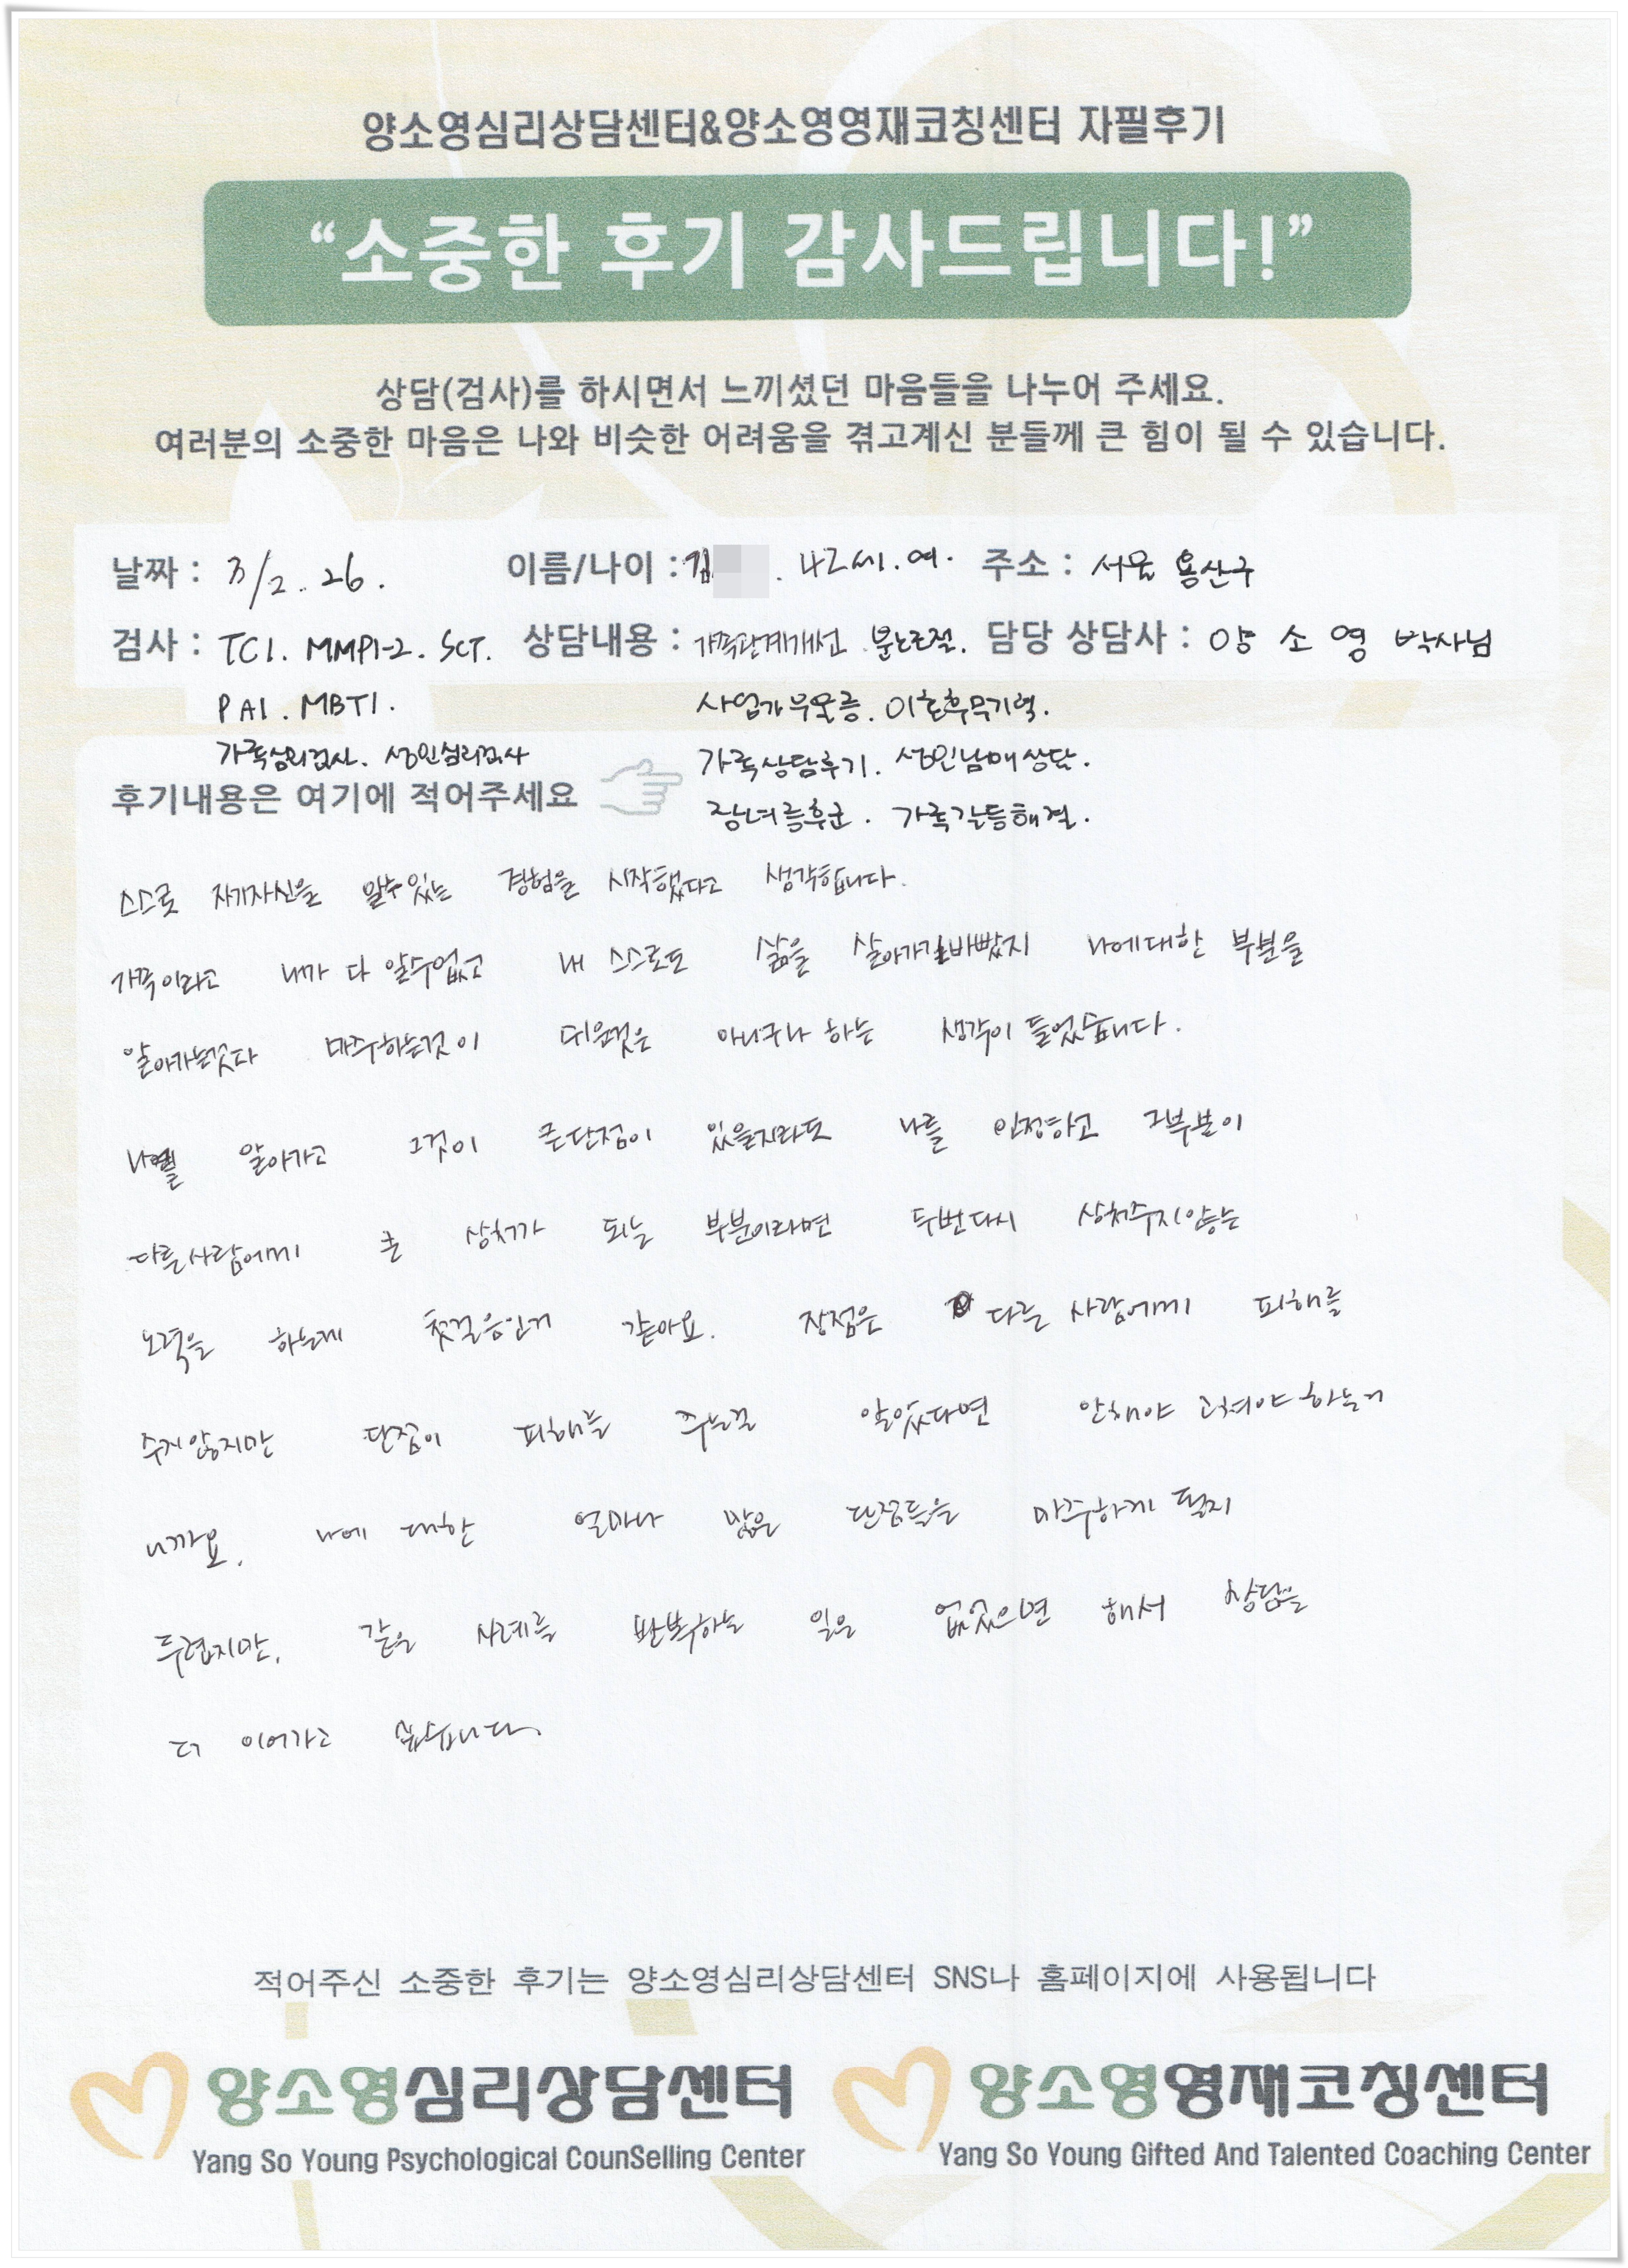 양소영심리상담센터&양소영영재코칭센터 자필후기
“소중한 후기 감사드립니다!”
상담(검사)를 하시면서 느끼셨던 마음들을 나누어 주세요.
여러분의 소중한 마음은 나와 비슷한 어려움을 겪고계신 분들께 큰 힘이 될 수 있습니다.
날짜 : 3/2. 26. 이름/나이 : 김 . 42세. 여. 주소 : 서울 용산구
검사 : TCI. MMPI-2. SCT. 상담내용 : 가족관계개선. 분노조절. 담당 상담사 : 양 소 영 박사님
PAI. MBTI. 사업가우울증. 이혼후무기력.
가족심리검사. 성인심리검사 가족상담후기. 성인남매상담.
후기내용은 여기에 적어주세요 장녀증후군. 가족갈등해결.
스스로 자기자신을 알수있는 경험을 시작했다고 생각합니다.
가족이라고 내가 다 알수없고 내 스스로도 삶을 살아가기바빴지 나에대한 부분을
알아가는것과 마주하는것이 쉬운것은 아니구나 하는 생각이 들었습니다.
나를 알아가고 그것이 큰단점이 있을지라도 나를 인정하고 그부분이
다른사람에게 큰 상처가 되는 부분이라면 두번다시 상처주지않는
노력을 하는게 첫걸음인거 같아요. 장점은 다른 사람에게 피해를
주지않지만 단점이 피해를 주는걸 알았다면 안해야 고쳐야 하는거
니까요. 나에 대한 얼마나 많은 단점들을 마주하게 될지
두렵지만, 같은 사례를 반복하는 일은 없었으면 해서 상담을
더 이어가고 싶습니다.
적어주신 소중한 후기는 양소영심리상담센터 SNS나 홈페이지에 사용됩니다
양소영심리상담센터 양소영영재코칭센터
Yang So Young Psychological CounSelling Center Yang So Young Gifted And Talented Coaching Center